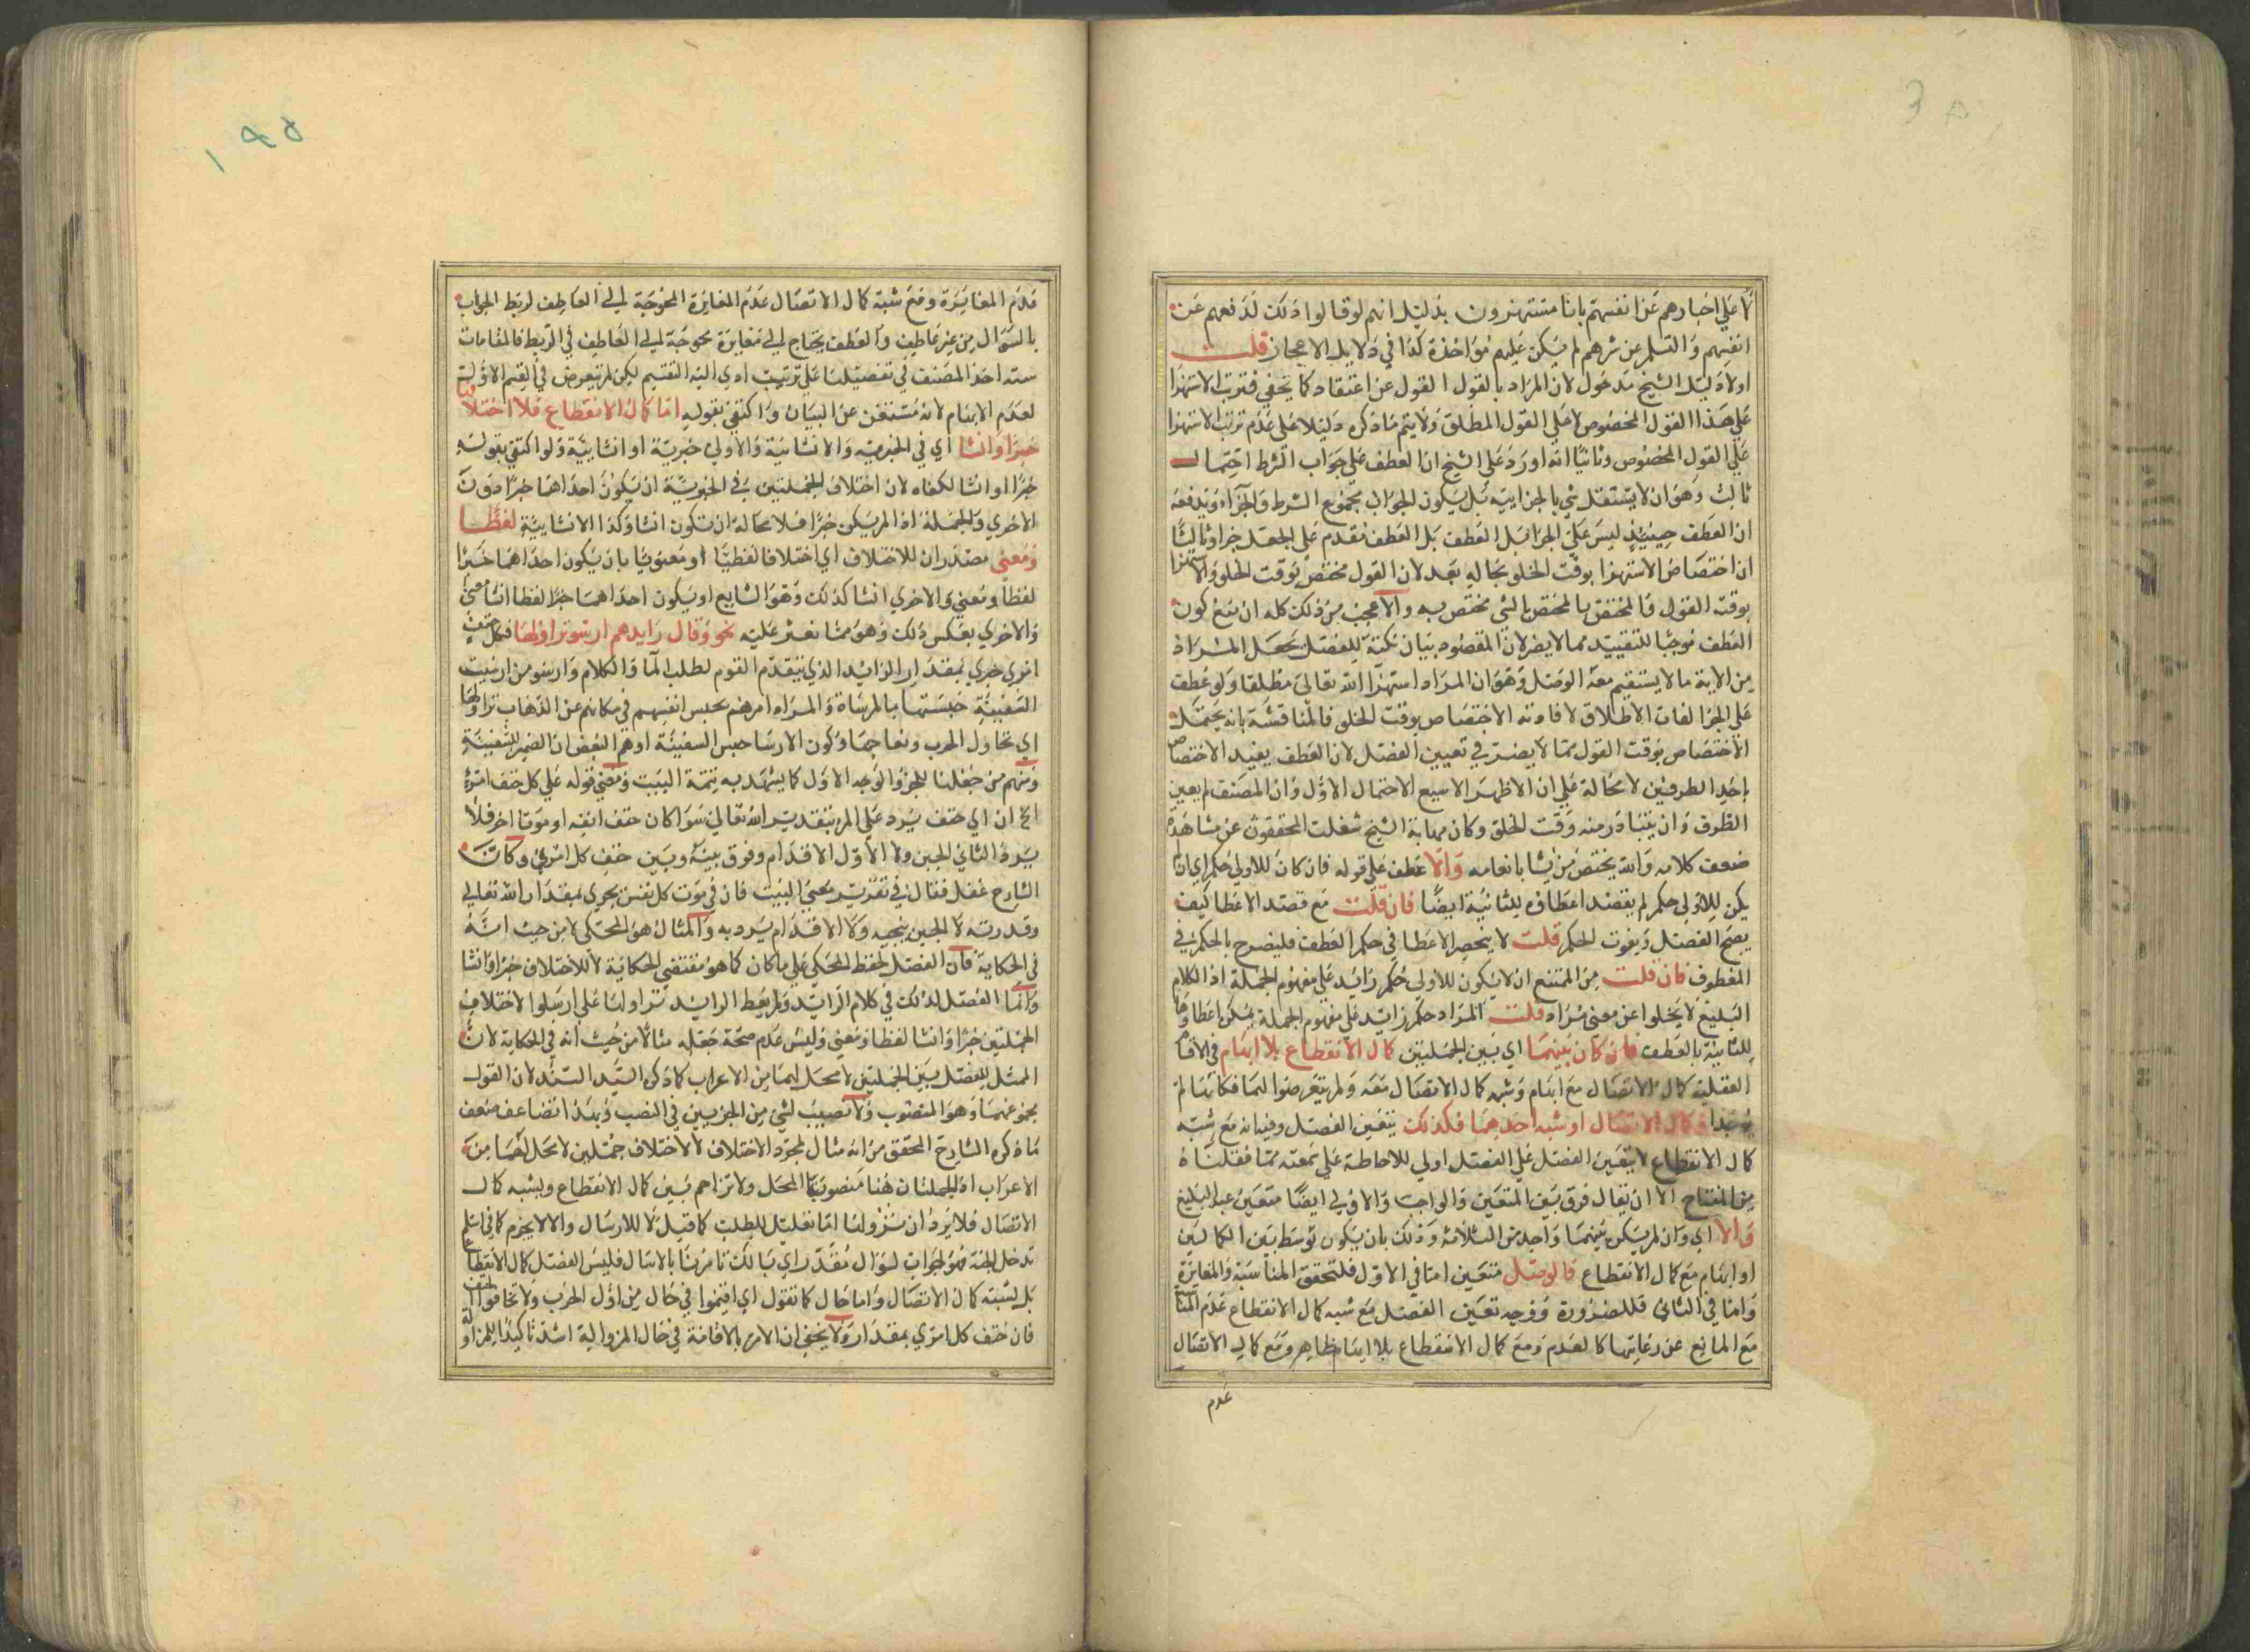 لا على اخبارهم عن انفسهم بانا مستهزون بدليل انهم لو قالوا ذلك لدفعهم عن
انفسهم والتسلم عن شرهم لم يكن عليهم مؤاخذة كذا في دلايل الاعجاز قلت
اولا دليل الشيخ مدخول لان المراد بالقول القول عن اعتقاد كما يخفى فترتب الاستهزا
على هذا القول المخصوص لا على القول المطلق ولا يتم ما ذكره دليلا على عدم ترتب الاستهزا
على القول المخصوص وثانيا انه اورد على الشيخ ان العطف على جواب الشرط احتمال
ثالث وهو ان لا يستقل شي بالجزاييه بل يكون الجواب مجموع الشرط والجزاء ويدفعه
ان العطف حينيذ ليس على الجزا قبل العطف بل العطف مقدم على الجعل جزا وثالثا
ان اختصاص الاستهزا بوقت الخلو بحاله بعد لان القول مختص بوقت الخلو والاستهزا
بوقت القول والمختص بالمختص بالشي مختص به والاعجب من ذلك كله ان منع كون
العطف موجبا للتقييد مما لا يضر لان المقصود بيان نكتة للفصل يجعل المراد
من الاية ما لا يستقيم معه الوصل وهو ان المراد استهزا الله تعالى مطلقا ولو عطف
على الجزا لفات الاطلاق لافادته الاختصاص بوقت الخلو فالمناقشة بانه يحتمل
الاختصاص بوقت القول مما لا يضر في تعيين الفصل لان العطف يفيد الاختصاص
باحد الطرفين لا محالة على ان الاظهر الاسبع الاحتمال الاول وان المصنف لم يعين
الظرف وان يتبادر منه وقت الخلو وكان مهابة الشيخ شغلت المحققون عن مشاهدة
ضعف كلامه والله يختص من يشا بانعامه والا عطف على قوله فان كان للاولى حكم اي ان لم
يكن للاولى حكم لم يقصد اعطاؤه للثانية ايضا فان قلت مع قصد الاعطا كيف
يصح الفصل ويفوت الحكم قلت لا ينحصر الاعطا في حكم العطف فليصرح بالحكم في
المعطوف فان قلت من الممتنع ان لا يكون للاولى حكم زايد على مفهوم الجملة اذ الكلام
البليغ لا يخلوا عن معنى مراد قلت المراد حكم زايد على مفهوم الجملة يمكن اعطاوها
للثانية بالعطف فان كان بينهما اي بين الجملتين كمال الانقطاع بلا ايهام في الاقسام
العقلية كمال الاتصال مع ايهام وشبه كمال الاتصال معه ولم يتعرضوا لهما فكانهما لم
يوجدا او كمال الاتصال او شبه احدهما فكذلك يتعين الفصل وفيه انه مع شبه
كمال الانقطاع لا يتعين الفصل على الفصل اولى للاحاطة على نعته مما فعلناه
من المفتاح الا ان يقال فرق بين المتعين والواجب والاولى ايضا متعين عند البليغ
والا اي وان لم يكن بينهما واحد من الثلاثة وذلك بان يكون توسط بين الكمالين
او ايهام مع كمال الانقطاع فالوصل متعين اما في الاول فلتحقق المناسبة والمغايرة
واما في الثاني فللضرورة ووجه تعين الفصل مع شبه كمال الانقطاع عدم المناسبة
مع المانع عن رعايتها كالعدم ومع كمال الانقطاع بلا ايهام ظاهر ومع كمال الاتصال
عدم
عدم المغايرة ومع شبه كمال الاتصال عدم المغايرة المحوجة الى العاطف لربط الجواب
بالسؤال من غير عاطف والعطف يحتاج الى مغايرة محوجة الى العاطف في الربط فالمقامات
سته اخذ المصنف في تفصيلها على ترتيب ادى اليه التقسيم لكن لم يتعرض في القسم الاول
لعدم الايهام لانه مستغن عن البيان واكتفى بقوله اما كمال الانقطاع فلاختلافهما
خبرا وانشا اي في الخبرية والانشائية والاولى خبرية او انشايية ولو اكتفى بقوله
خبرا او انشا لكفاه لان اختلاف الجملتين في الخبرية ان يكون احداهما خبرا دون
الاخرى والجملة اذا لم يكن خبرا فلا محالة ان تكون انشا وكذا الانشايية لفظا
ومعنى مصدران للاختلاف اي اختلافا لفظيا او معنويا بان يكون احداهما خبرا
لفظا ومعنى والاخرى انشا كذلك وهو الشايع او يكون احداهما خبرا لفظا انشا معنى
والاخرى بعكس ذلك وهو مما نعثر عليه نحو وقال رايدهم ارسوا نزاولها فكل حتف
امرئ يجري بمقدار الرايد الذي يتقدم القوم لطلب الما والكلام وارسو من ارسيت
السفينة حبستها بالمرساة والمراد امرهم بحبس انفسهم في مكانهم عن الذهاب نزاولها
اي نحاول الحرب ونعالجها وكون الارسا حبس السفينة اوهم البعض ان الضمير للسفينة
ومنهم من جعلها للخمر والوجه الاول كما يشهد به تتمة البيت ومعنى قوله على كل حتف امرئ
الخ ان اي حتف يرد على المرء بتقدير الله تعالى سوا كان حتف انفه او موتا اخر فلا
يرده الثاني الجبن ولا الاول الاقدام وفرق بينه وبين حتف كل امرئ وكان
الشارح غفل فقال في تقدير معنى البيت فان في موت كل نفس يجري بمقدار الله تعالى
وقدرته لا الجبن ينجيه ولا الاقدام يرد به والمثال هو المحكي لا من حيث انه
في الحكاية فان الفصل لحفظ المحكي على ما كان كما هو مقتضى الحكاية لا للاختلاف خبرا وانشا
وانما الفصل لذلك في كلام الرايد ولم يعط الرايد نزاولها على ارسلوا لاختلاف
الجملتين خبرا وانشا لفظا ومعنى وليس عدم صحة جعله مثالا من حيث انه في الحكاية لان
الممثل للفصل بين الجملتين لا محل لهما من الاعراب كما ذكره السيد السند لان القول
مجموعهما وهو المنصوب ولا نصيب لشي من الجزيين في النصب وبهذا تضاعف ضعف
ما ذكره الشارح المحقق من انه مثال لمجرد الاختلاف لا لاختلاف جملتين لا محل لهما من
الاعراب اذ الجملتان هنا منصوبتا المحل ولا تزاحم بين كمال الانقطاع وبشبه كمال
الاتصال فلا يرد ان نزولها اما تعليل للطلب كما قيل لا للارسال والا لا يجزم كما في اسلم
تدخل الجنة فهو لجواب لسؤال مقدر اي بالك تامرنا بالارسال فليس الفصل كمال الانقطاع
بل لشبه كمال الاتصال واما حال كما تقول اي اقيموا في حال من اول الحرب ولا تخافوا الحتف
فان حتف كل امرئ بمقدار ولا يخفى ان الامر بالاقامة في حال المزوالية اشد تاكيدا للمزاولة